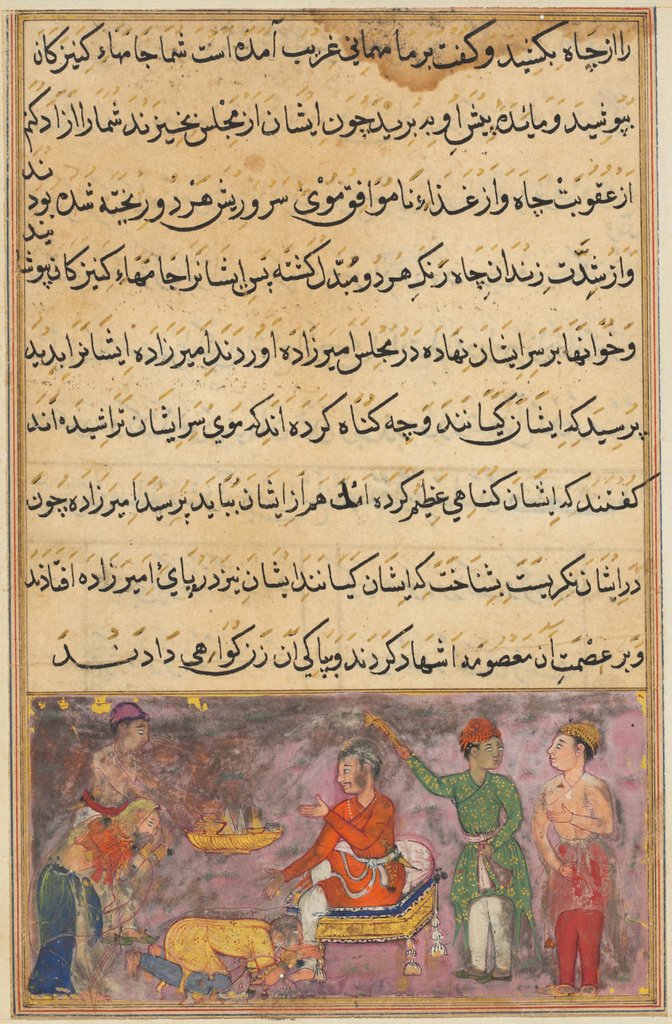 را از چاه بکشید و گفت بر ما مهمانی غریب آمده است شما جامهاء کنیزکان
بپوشید و مائده پیش او به برید چون ایشان از مجلس بخیزند شما را ازاد کنم
از عقوبت چاه و از غذاء ناموافق موی سر و ریش هر دو ریخته شده بود
و از شدّت زندان چاه رنک هر دو مبدّل کشته پس ایشانرا جامهاء کنیزکان پوشانیدند
و خوانها بر سر ایشان نهاده در مجلس امیرزاده اوردند امیرزاده ایشانرا بدید
پرسید که ایشان کیانند و چه کناه کرده اند که موی سر ایشان تراشیده اند
کفتند که ایشان کناهی عظیم کرده اند هم از ایشان بباید پرسید امیرزاده چون
در ایشان نکریست بشناخت که ایشان کیانند ایشان نیز در پای امیرزاده افتادند
و بر عصمت آن معصومه اشهاد کردند و بپاکی آن زن کواهی دادند